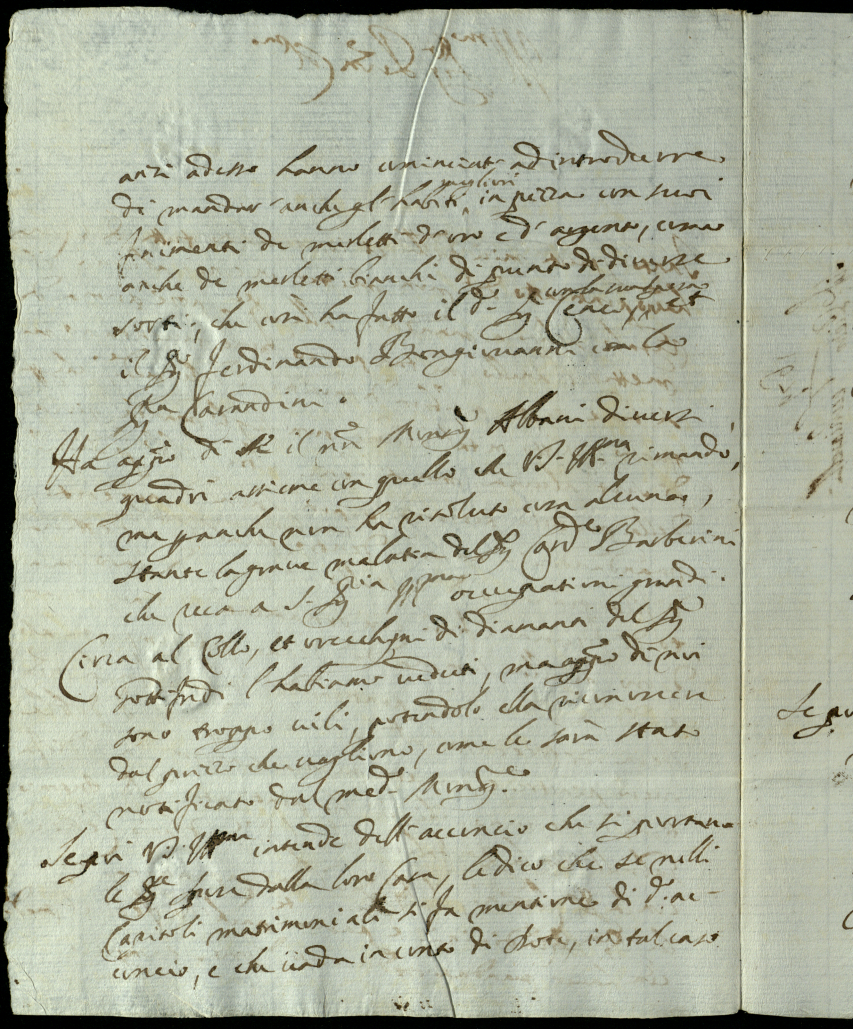 anzi adesso hanno cominciato ad introdurre
di mandar' anche gl' habiti migliori in pezza con suoi
finimenti de merletti d'oro e d' argento, come
anche de merletti bianchi di punto di diverse
sorti, che così ha fatto il d.º Sig.r Cenci, et
il Sig.r Ferdinando Bongiovanni con la
Sig.ra Carandini.
Ha app.º di se il n.ro Mons.r Albani diversi
quadri assieme con quello che V.S. Ill.ma rimandò,
ma p anche non ha risoluto cosa alcuna,
stante la grave malatia del Sig.r Card.le Barberini
che reca a S. Sig.ria Ill.ma occupationi grandi.
Circa al Collo, et orecchini di diamanti del Sig.r
Gottifredi l' habiamo veduti, ma app.º di noi
sono troppo vili, potendolo ella riconoscere
dal prezzo che vagliono, come le sarà stato
notificato dal med.º Mons.re
Se poi V.S. Ill.ma intende dell' acconcio che si portano
le Sig.re spose dalla loro Casa, le dico che se nelli
Capitoli matrimoniali si fa mentione di d.º ac-
concio, e che vada in conto di dote, in tal caso
Se poi